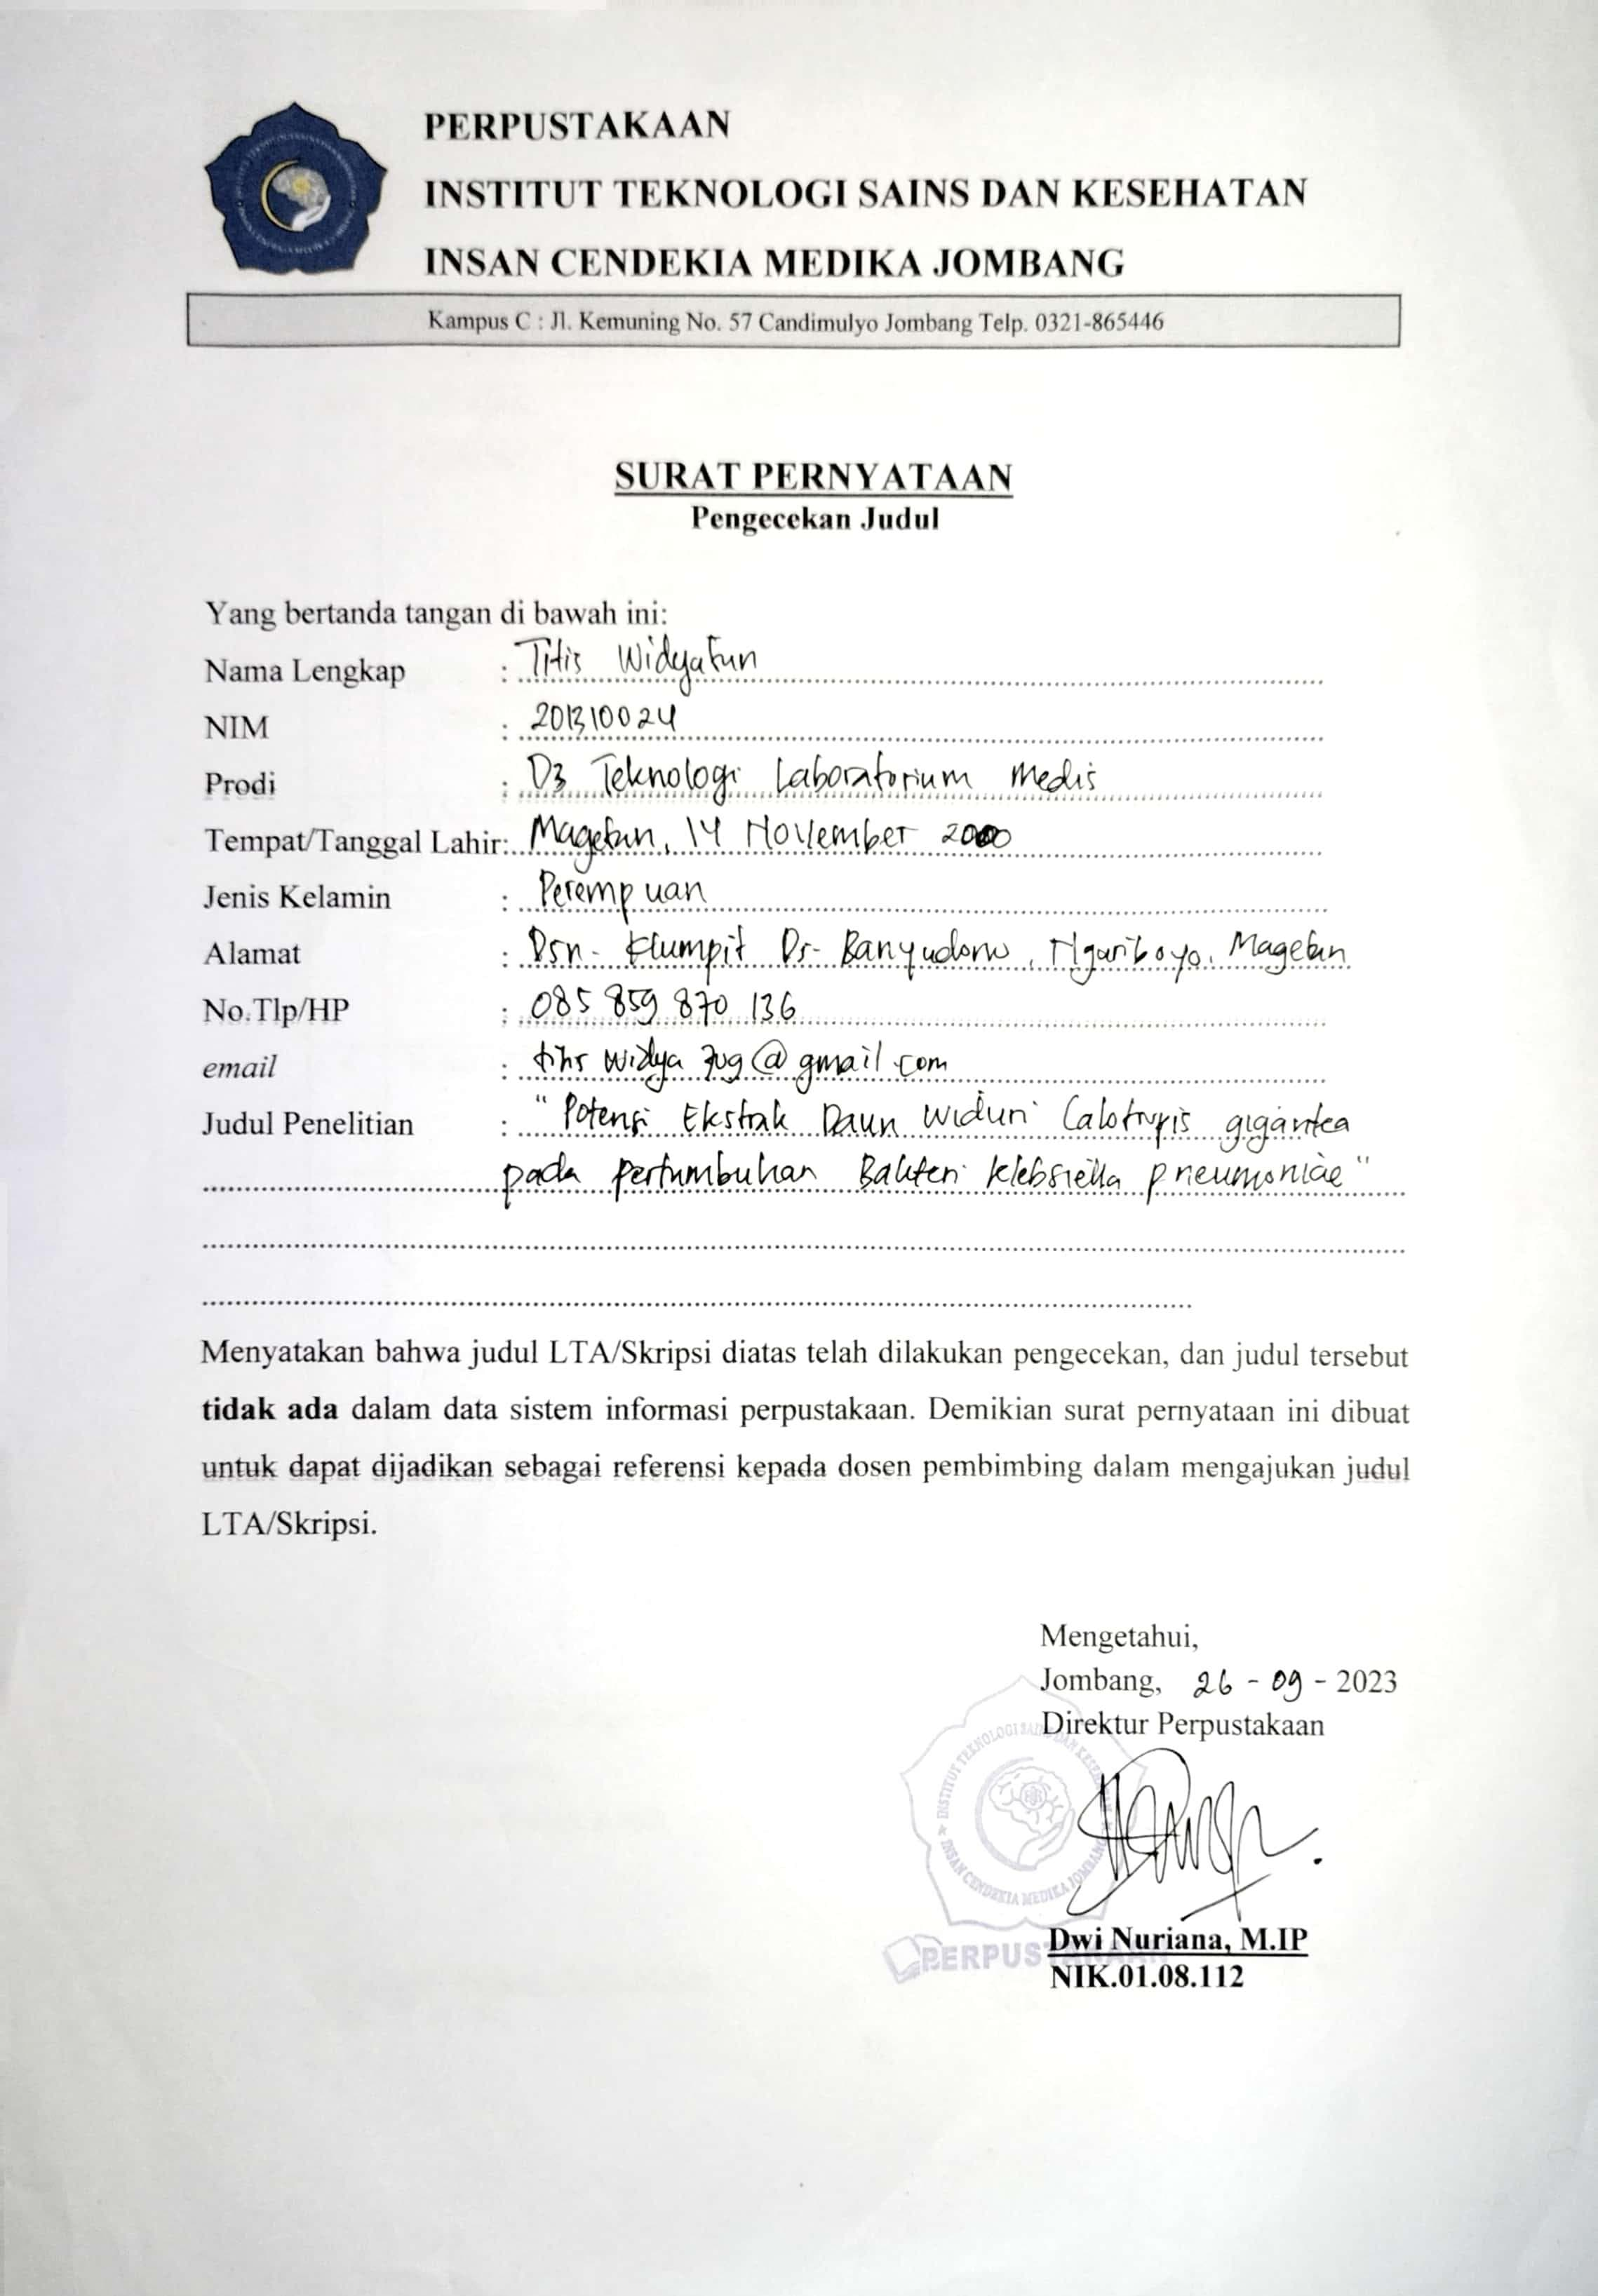 PERPUSTAKAAN
INSTITUT TEKNOLOGI SAINS DAN KESEHATAN
INSAN CENDEKIA MEDIKA JOMBANG
Kampus C : Jl. Kemuning No. 57 Candimulyo Jombang Telp. 0321-865446
SURAT PERNYATAAN
Pengecekan Judul
Yang bertanda tangan di bawah ini:
Nama Lengkap : Titis Widyatun
NIM : 201310024
Prodi : D3 Teknologi Laboratorium Medis
Tempat/Tanggal Lahir: Magetan, 14 November 2000
Jenis Kelamin : Perempuan
Alamat : Dsn- Klumpit Ds- Banyudono, Ngariboyo, Magetan
No.Tlp/HP : 085 859 870 136
email :
Judul Penelitian : "Potensi Ekstrak Daun Widuri Calotropis gigantea
pada Pertumbuhan Bakteri Klebsiella pneumoniae"
Menyatakan bahwa judul LTA/Skripsi diatas telah dilakukan pengecekan, dan judul tersebut
tidak ada dalam data sistem informasi perpustakaan. Demikian surat pernyataan ini dibuat
untuk dapat dijadikan sebagai referensi kepada dosen pembimbing dalam mengajukan judul
LTA/Skripsi.
Mengetahui,
Jombang, 26 - 09 - 2023
Direktur Perpustakaan
INSTITUT TEKNOLOGI SAINS DAN KESEHATAN
INSAN CENDEKIA MEDIKA JOMBANG
PERPUSTAKAAN
Dwi Nuriana, M.IP
NIK.01.08.112